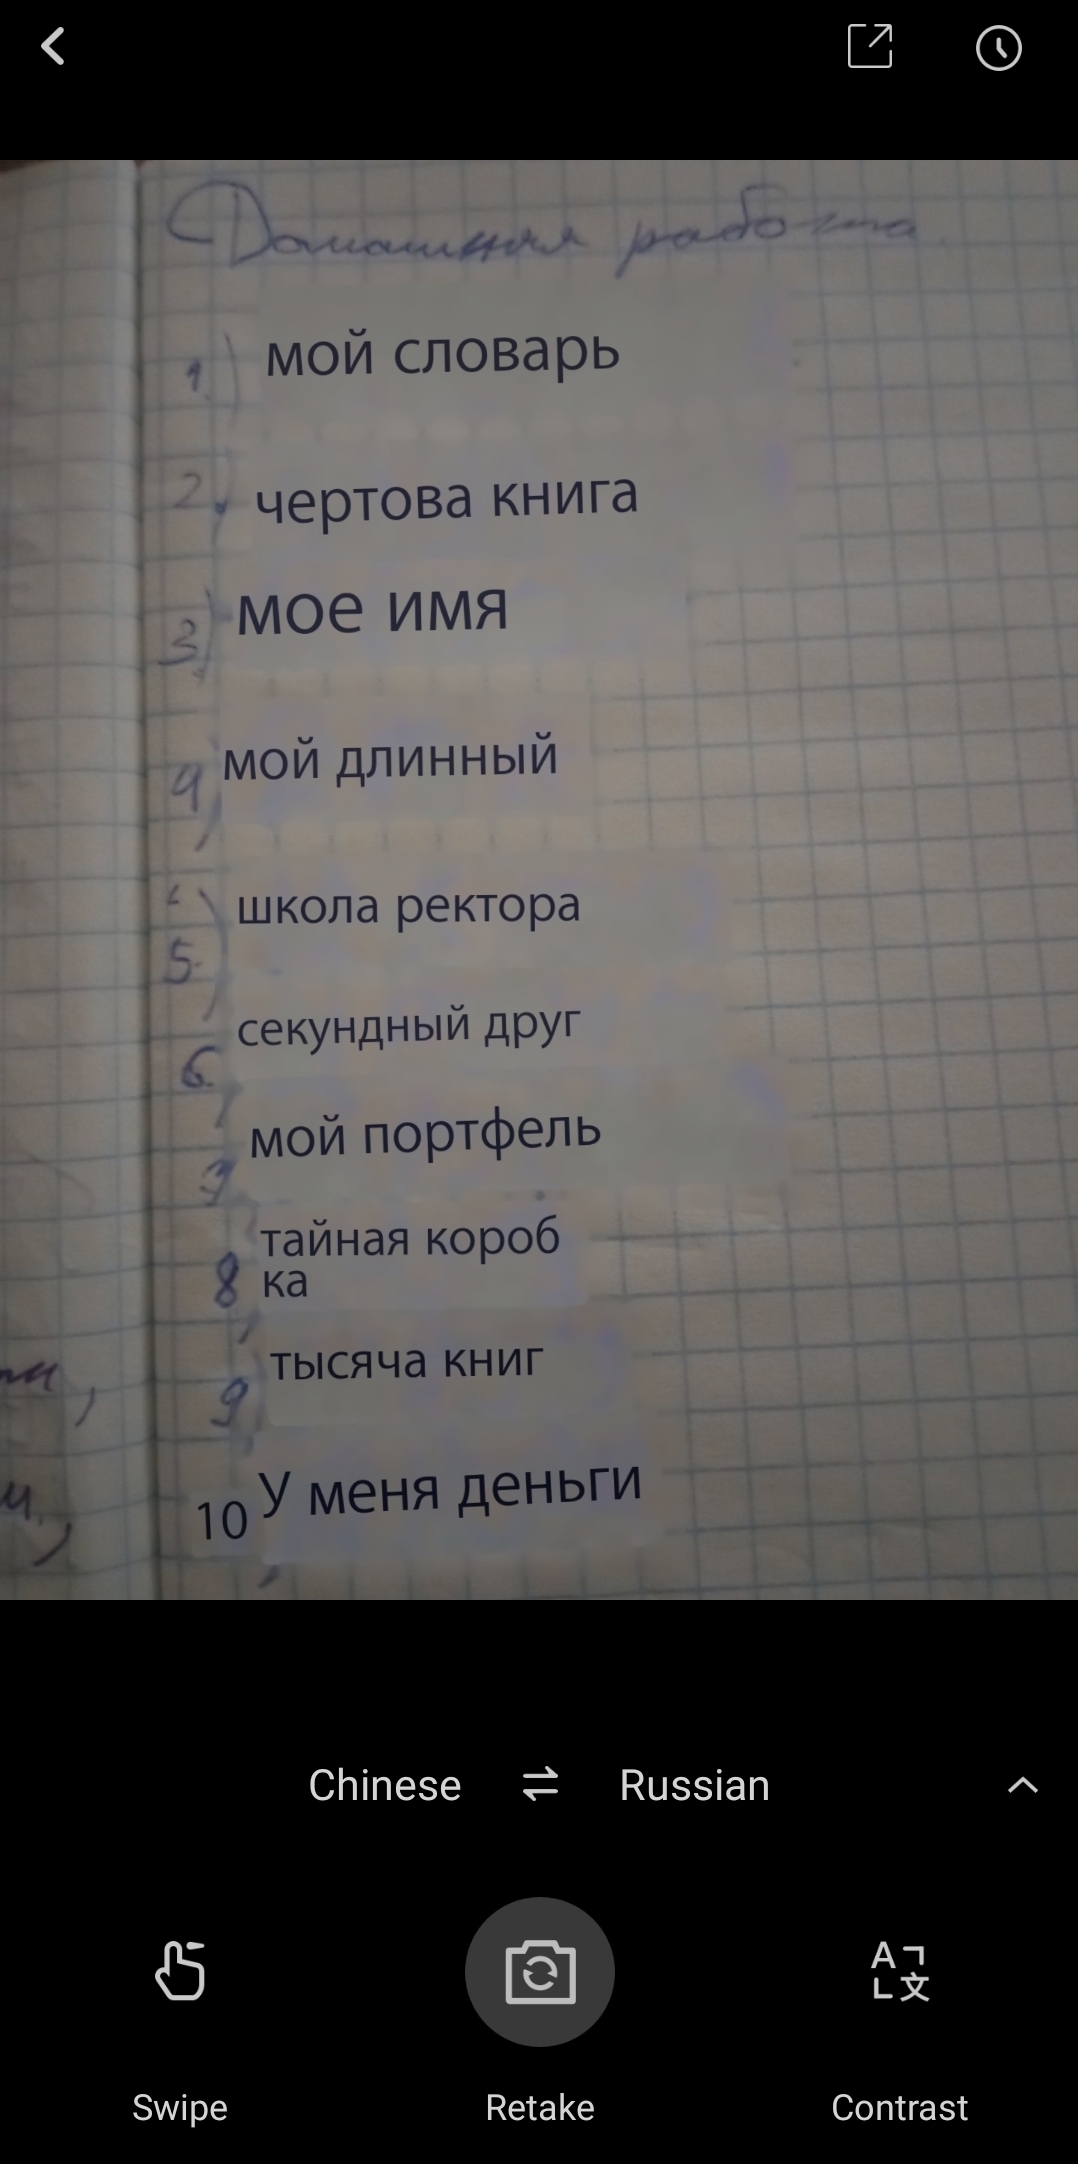 Домашняя работа.
1.) мой словарь
2. чертова книга
3) мое имя
4, мой длинный
5) школа ректора
6 секундный друг
мой портфель
8, тайная короб
ка
9, тысяча книг
10, У меня деньги
Chinese ⇌ Russian
A 文
Swipe Retake Contrast